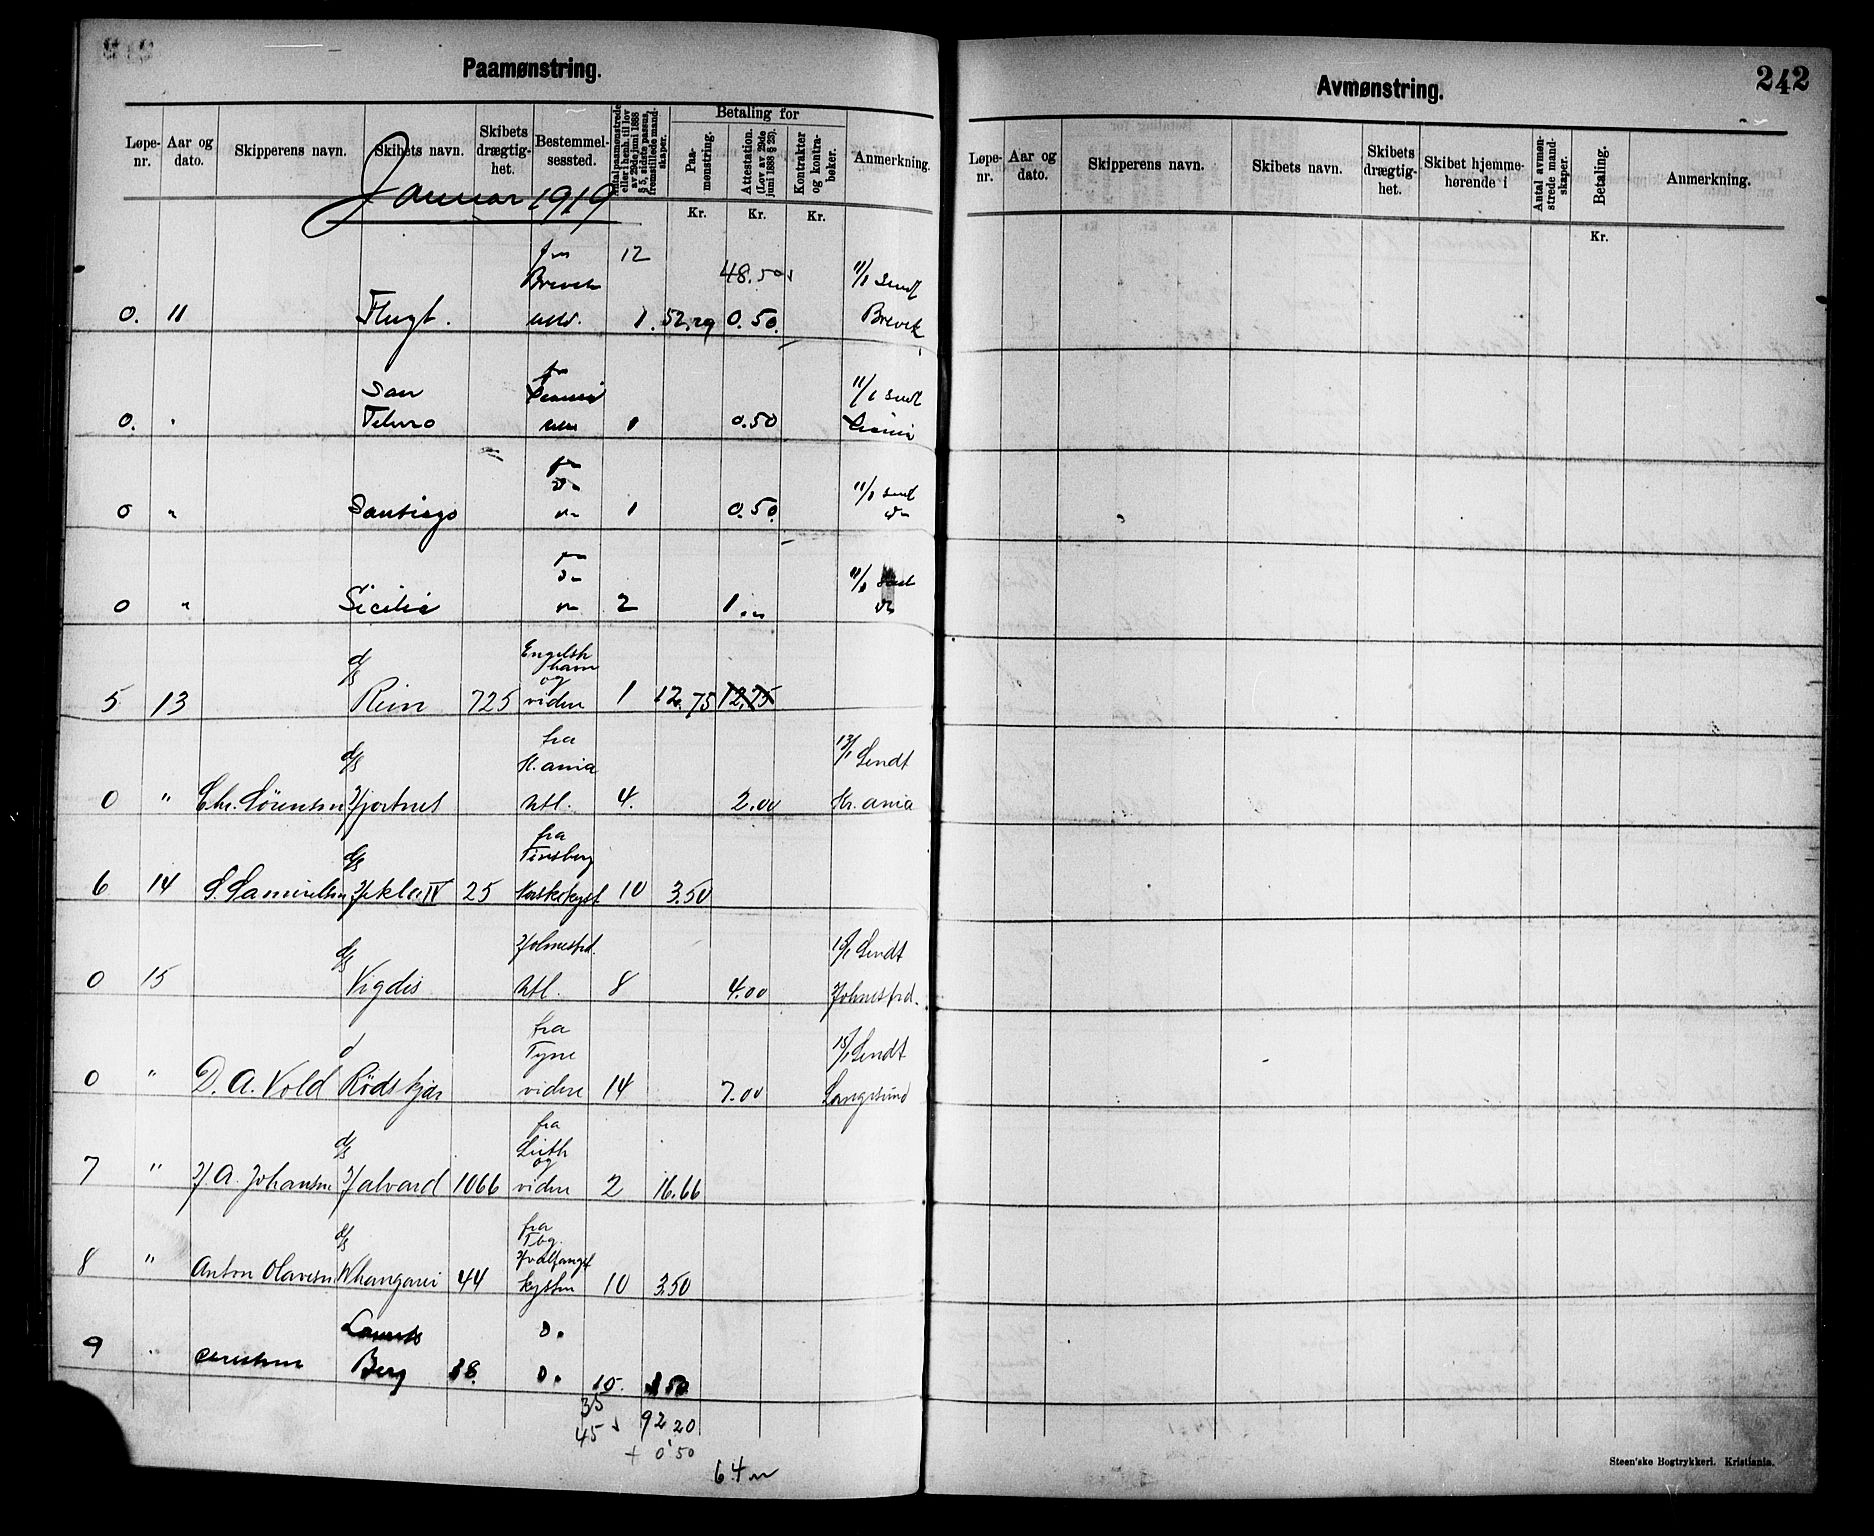 Paamønstring.
Løpe-
nr.
Aar og
dato.
Skipperens navn.
Skibets navn.
Skibets
drægtig-
het.
Bestemmel-
sessted.
Antal paamønstrede
eller i henh. til lov
av 29de juni 1888
§ 5, sidste passus,
fremstillede mand-
skaper.
Betaling for
Paa-
mønstring.
Attestation.
(Lov av 29de
juni 1888 § 25).
Kontrakter
og kontra-
bøker.
Anmerkning.
Kr. Kr. Kr.
Januar 1919
fra 12
Brevik 48.50 11/1 sendt
0. 11 Flugt. 1. 52.29 0.50. Brevik
fra
San 11/1 sendt
0. " Telmo 1 0.50
11/1 sendt
0 " Santiago 1 0.50.
0 " Sicilia 2 1
d/s Engelsk
havn
og
5 13 Rein 725 videre 1 12.75 12.75
fra
d/s K.ania 13/1 Sendt
0 " Chr. Sörensen Hjertnes utl. 4. 2.00 Kr.ania
fra
d/s Tønsberg
6 14 S. Samuelsen Hekla IV 25 Norskekyst 10 3.50
d/s Holmestrd. 15/1 Sendt
0 15 Vigdis utl. 8 4.00 Holmestrd.
fra
d Tyne 15/1 Sendt
0 " D. A. Vold Rödskjær videre 14 7.00 Langesund
fra
d/s Leith
og
7 " H A. Johansen Halvard 1066 videre 2 16.66
fra
d/s Tbg.
Hvalfangst
8 " Anton Olavesen Whangarei 44 kysten 10 3.50
Laurits Do.
9 " Christensen Berg 38. Do. 10. 3.50
35
45 92 20
+ 0.50
64
Avmønstring.
242
Løpe-
nr.
Aar og
dato.
Skipperens navn.
Skibets navn.
Skibets
drægtig-
het.
Skibet hjemme-
hørende i
Antal avmøn-
strede mand-
skaper.
Betaling.
Anmerkning.
Kr.
Steen'ske Bogtrykkeri. Kristiania.